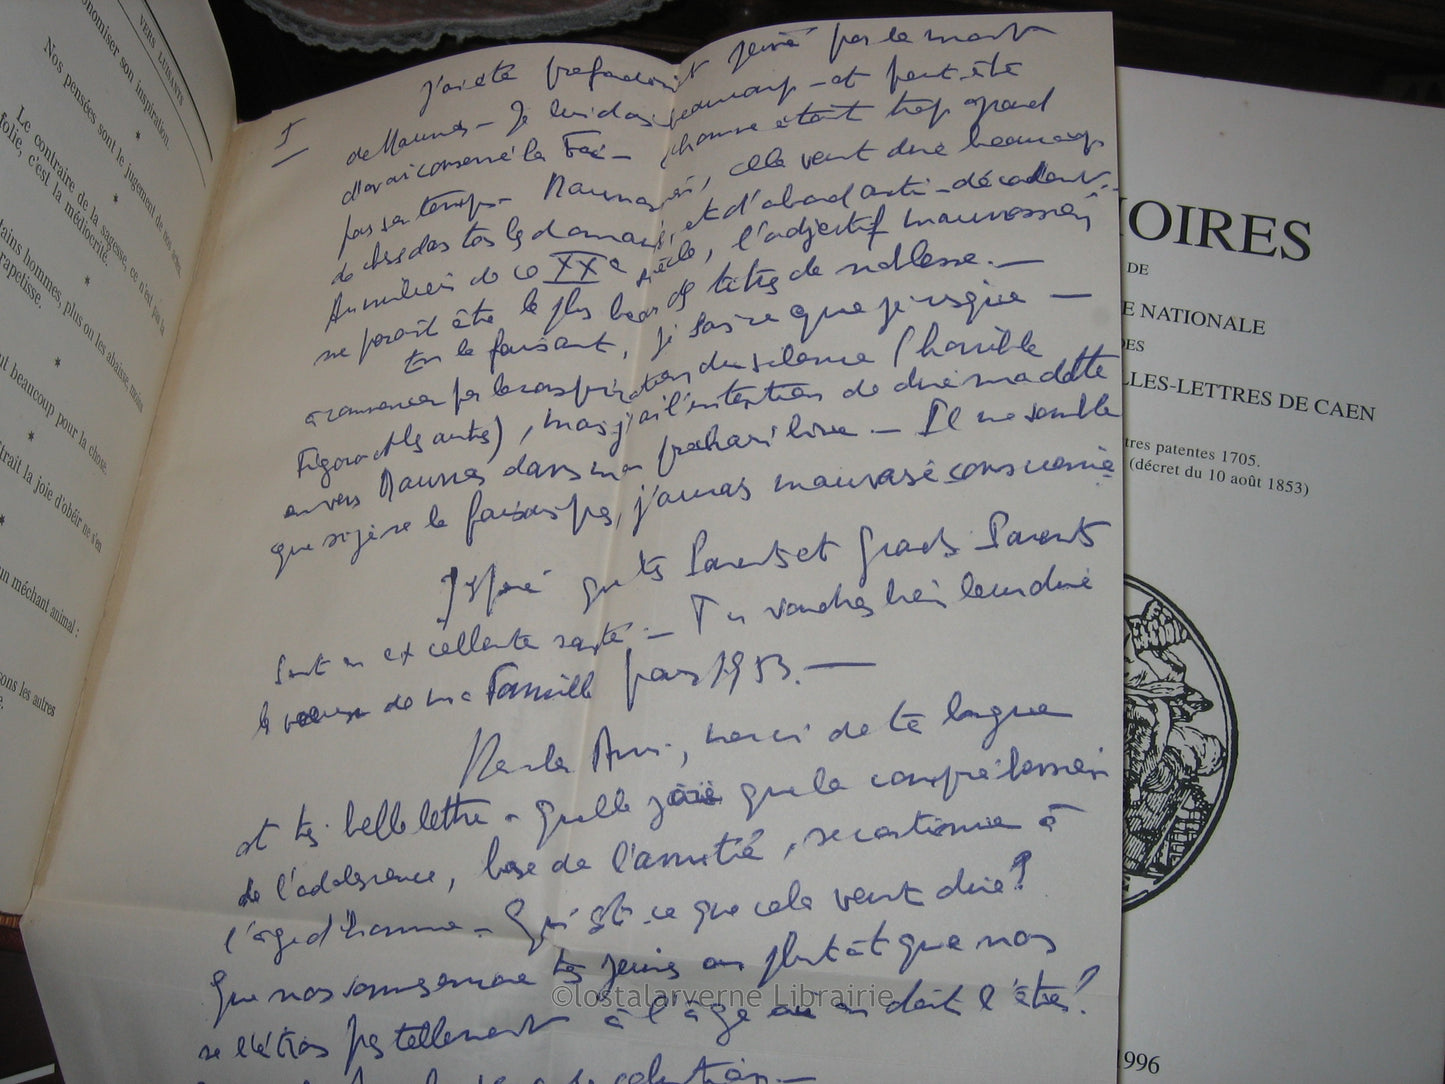 VERS LUISANTS
onomiser son inspiration.
*
Nos pensées sont le jugement de nos actes.
*
Le contraire de la sagesse, ce n'est pas la
folie, c'est la médiocrité.
*
tains hommes, plus on les abaisse, moins
*
ut beaucoup pour la chose.
*
trait la joie d'obéir ne s'en
*
un méchant animal :
sons les autres
I
J'ai été profondément peiné par la mort
de Maurras — Je lui dois beaucoup — et peut-être
d'avoir conservé la Foi — homme était trop grand
pour son temps — Maurrassien, cela veut dire beaucoup
de choses dans tous les domaines, et d'abord anti-décadent.
Au milieu de ce XXe siècle, l'adjectif maurrassien
me paraît être le plus beau des titres de noblesse. —
En le faisant, je sais ce que je risque —
à commencer par la conspiration du silence (horrible
Figaro et les autres), mais j'ai l'intention de dire ma dette
envers Maurras dans mon prochain livre — Il me semble
que si je ne le faisais pas, j'aurais mauvaise conscience
J'espère que tes Parents et Grands Parents
sont en excellente santé — Tu voudras bien leur dire
les vœux de ma Famille pour 1953. —
Merci de ta longue
et très belle lettre — Quelle joie que la compréhension
de l'adolescence, base de l'amitié, se continue à
l'âge d'homme — Qu'est-ce que cela veut dire?
Que nous sommes encore très jeunes ou plutôt que nous
ne l'étions pas tellement à l'âge où on doit l'être?
MOIRES
DE
E NATIONALE
DES
LLES-LETTRES DE CAEN
tres patentes 1705.
(décret du 10 août 1853)
1996
©lostalarverne Librairie